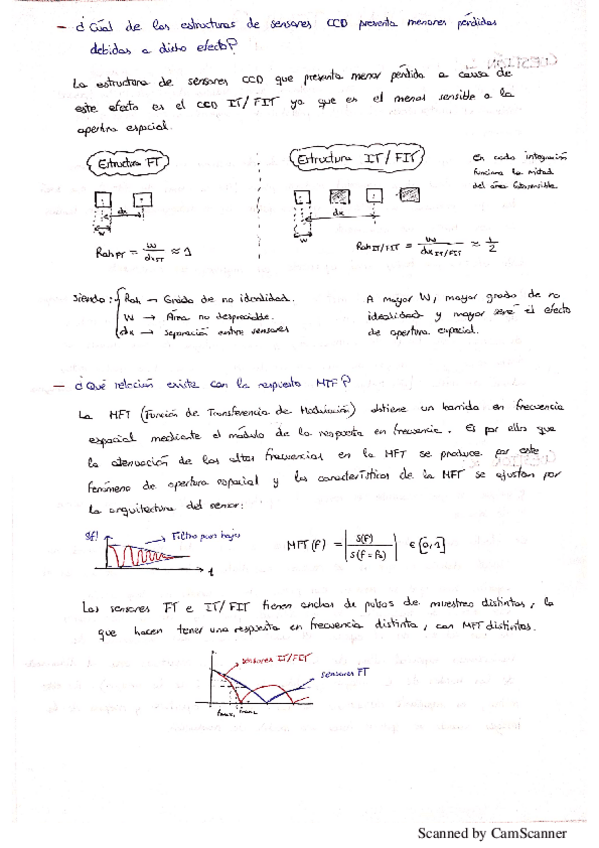 - ¿Cuál de las estructuras de sensores CCD presenta menores pérdidas
debidas a dicho efecto?
La estructura de sensores CCD que presenta menor pérdida a causa de
este efecto es el CCD IT/FIT ya que es el menos sensible a la
apertura espacial.
Estructura FT
Estructura IT/FIT
En cada integración
funciona la mitad
del área fotosensible.
dx
w
dx
w
RohFT = w/dxFT ≈ 1
RohIT/FIT = w/dxIT/FIT ≈ 1/2
siendo: Roh → Grado de no idealidad.
W → Área no despreciable.
dx → separación entre sensores
A mayor W, mayor grado de no
idealidad y mayor será el efecto
de apertura espacial.
- ¿Qué relación existe con la respuesta MTF?
La MFT (Función de Transferencia de Modulación) obtiene un barrido en frecuencia
espacial mediante el módulo de la respuesta en frecuencia. Es por ello que
la atenuación de las altas frecuencias en la MFT se produce por este
fenómeno de apertura espacial y las características de la MFT se ajustan por
la arquitectura del sensor:
Filtro paso bajo
f
MFT(f) = |S(f)/S(f-fo)| ∈ [0,1]
Los sensores FT e IT/FIT tienen anchos de pulsos de muestreo distintos, lo
que hacen tener una respuesta en frecuencia distinta, con MFT distintas.
sensores IT/FIT
sensores FT
Scanned by CamScanner